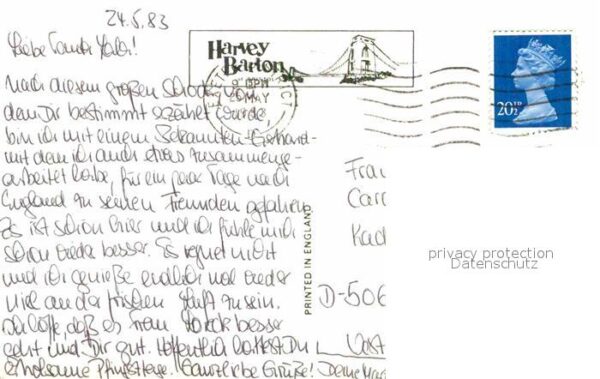 24.5.83
Liebe Tante
Harvey
Barton
PM
MAY
20½P
Nach diesem großen Schock, von
dem Dir bestimmt erzählt wurde
bin ich mit einem Bekannten Gerhard -
mit dem ich auch etwas zusammenge-
arbeitet habe, für ein paar Tage nach
England zu seinen Freunden gefahren.
Es ist schön hier und ich fühle mich
schon wieder besser. Es regnet nicht
und ich genieße endlich mal wieder
viel an der frischen Luft zu sein.
Ich hoffe, daß es Frau besser
geht und Dir gut. Hoffentlich hattest Du
erholsame Pfingsttage. Ganz liebe Grüße! Deine
PRINTED IN ENGLAND
Frau
Car
Kad
D-506
privacy protection
Datenschutz